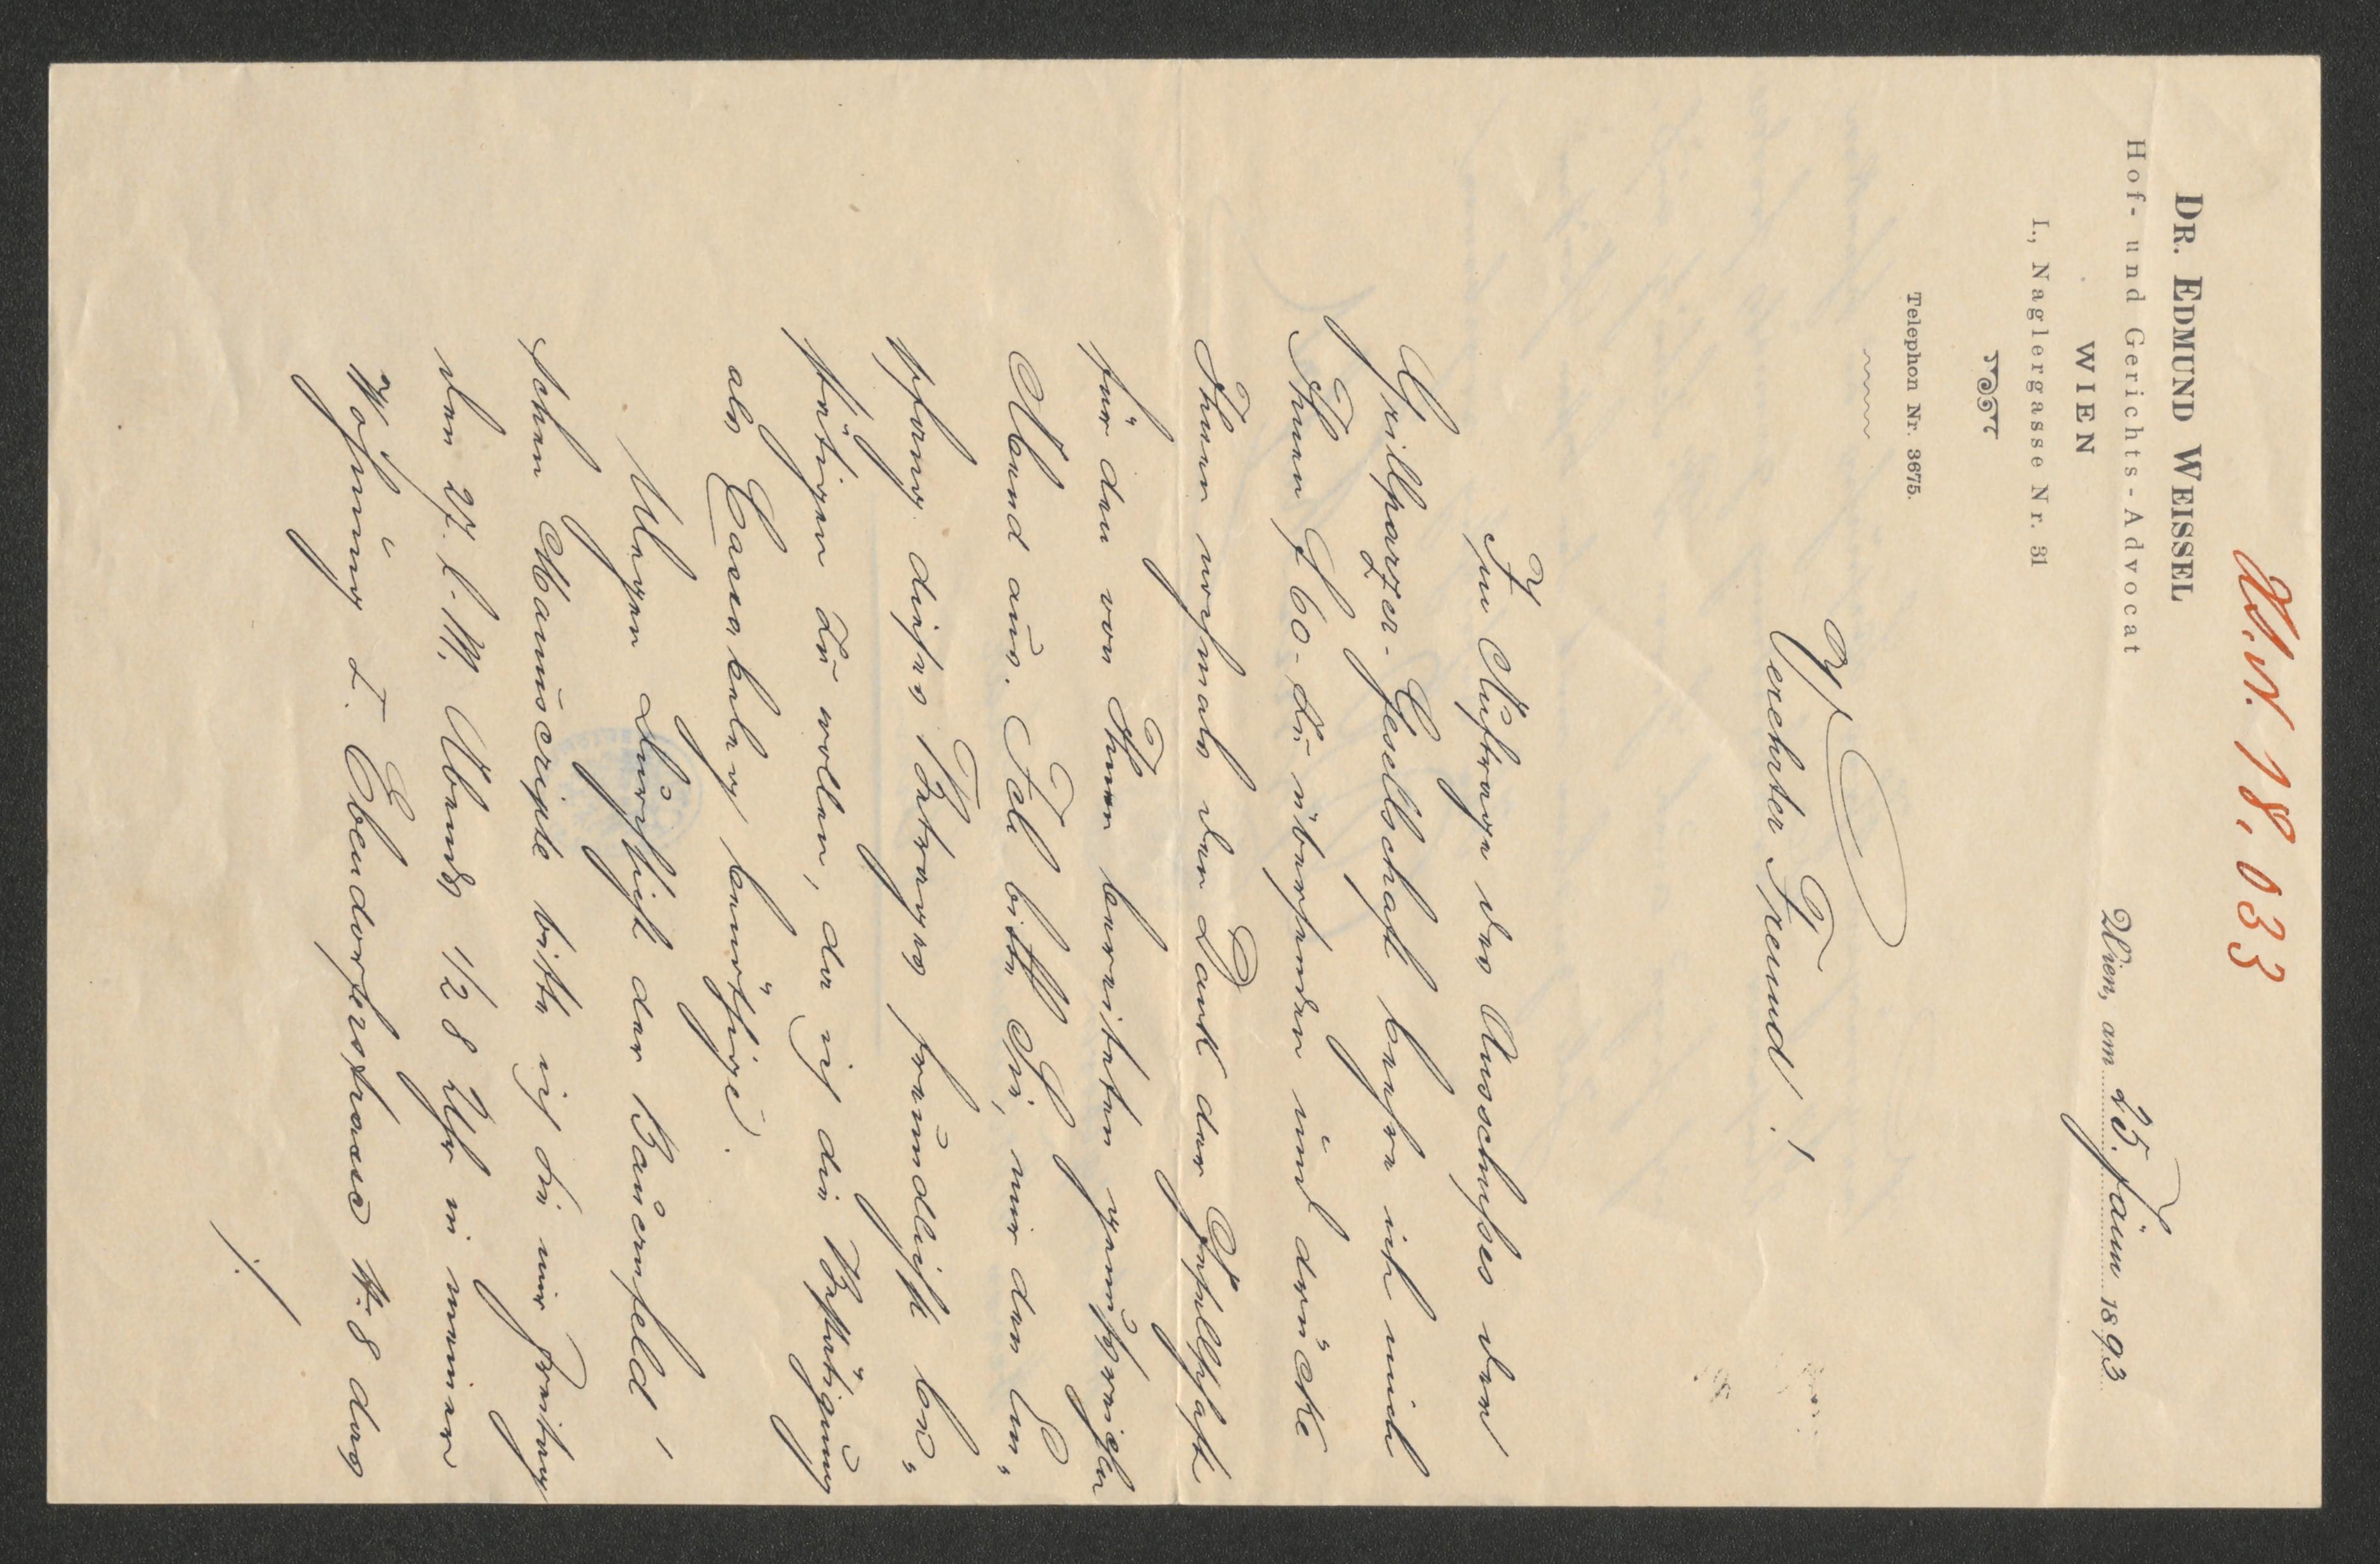 H.I.N. 18.033
DR. EDMUND WEISSEL
Hof- und Gerichts-Advocat
WIEN
I., Naglergasse Nr. 31
Telephon Nr. 3675.
Wien, am 25. Jänn 1893
Verehrter Freund!
Im Auftrage des Ausschußes der
Grillparzer-Gesellschaft beehre ich mich
Ihnen f 60- zu übersenden und drücke
Ihnen nochmals den Dank der Gesellschaft
für den von Ihnen bereiteten genußreichen
Abend aus. Ich bitte Sie, mir den Em„
pfang dieses Betrages freundlichst be„
stätigen zu wollen, da ich die Bestätigung
als Cassabeleg benöthige.
Wegen Durchsicht der Bauernfeld'
schen Manuscripte bitte ich Sie mir Freitag
den 27. l. M. Abends 1/2 8 Uhr in meiner
Wohnung I. Ebendorferstrasse N. 8 das
./.